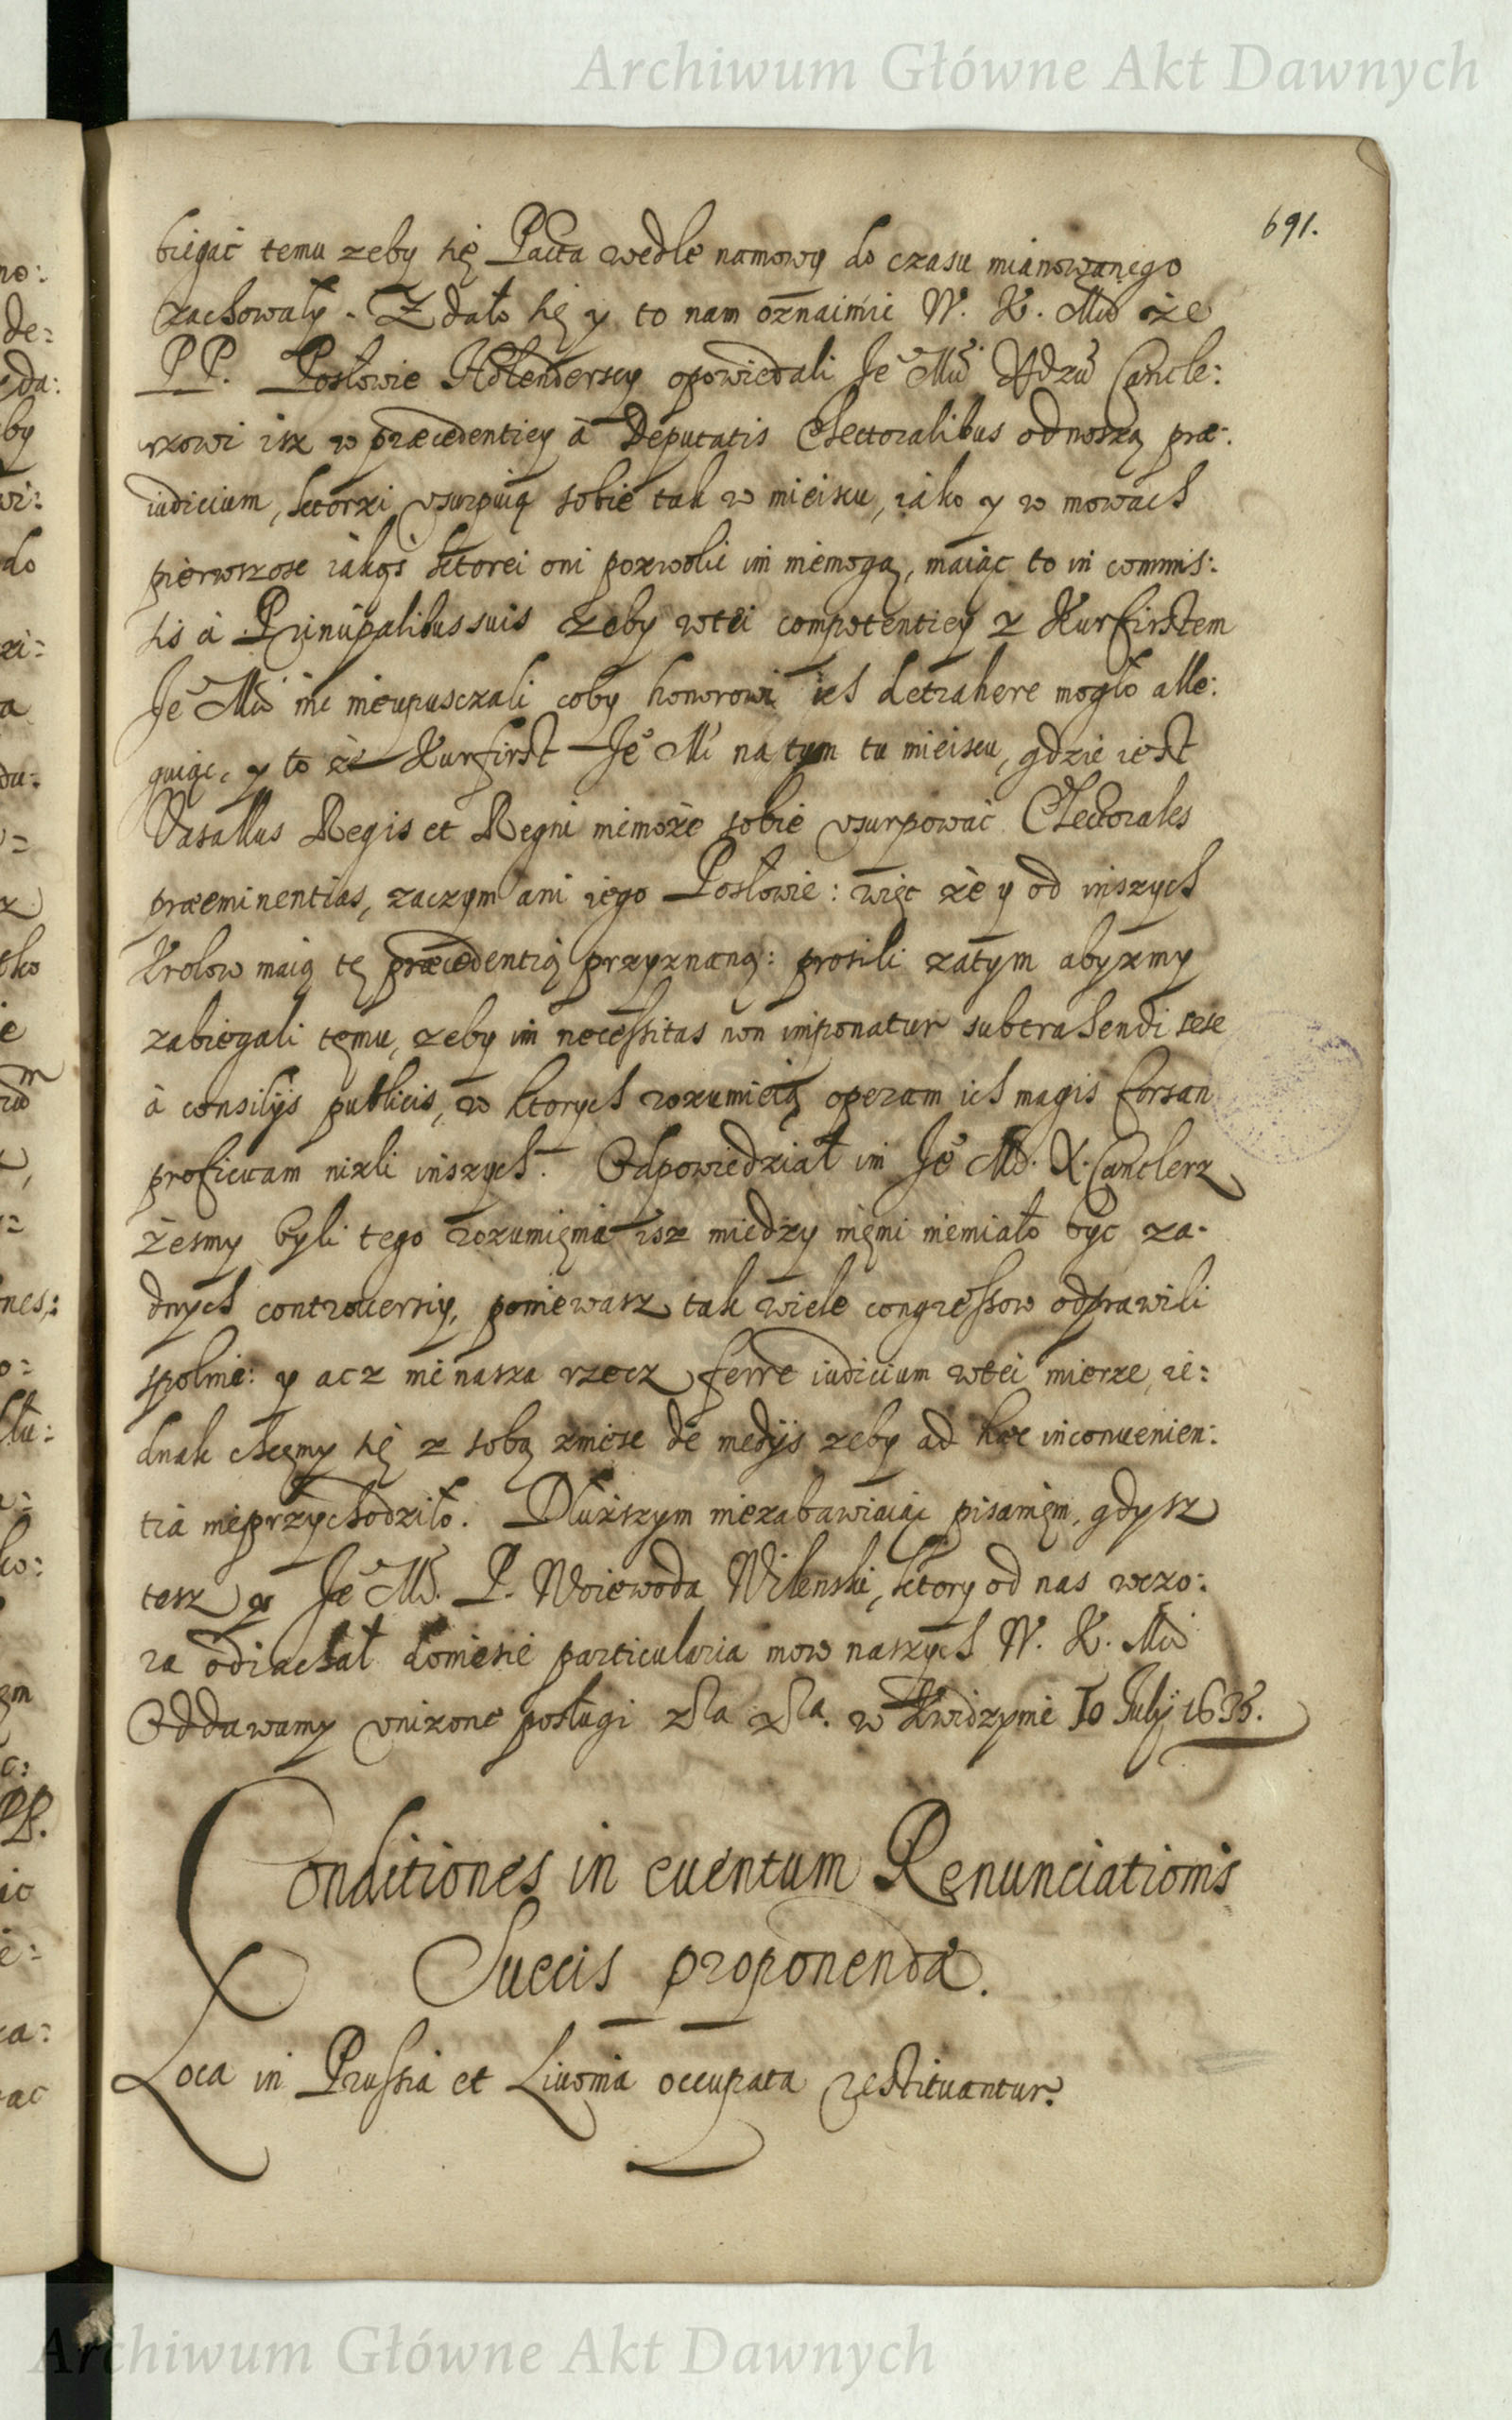 Archiwum Główne Akt Dawnych
691.
biegać temu zeby się Pacta wedle namowy do czasu mianowanego
zachowały. Zdało się y to nam oznaimic W. K. Mći że
PP. Posłowie Hollenderscy opowiedali Je Mći Xdzu Cancle:
rzowi isz w præcedentiey à Deputatis Electoralibus odnoszą præ:
iudicium, ktorzi vsurpuią sobie tak w mieiscu, iako y w mowach
pierwszosc iakąś ktorei oni pozwolic im niemogą, maiąc to in commis:
sis à Principalibus suis zeby wtei competentiey z Kurfirsztem
Je Mći nic nieupusczali coby honorowi ich detrahere mogło alle:
guiąc, y to że Kurfirszt Je Mć na tym tu mieiscu, gdzie iest
Vasallus Regis et Regni niemoże sobie vsurpować Electorales
præeminentias, zaczym ani iego Posłowie: więc że y od inszych
Krolow maią tę præcedentią przyznaną: prosili zatym abyżmy
zabiegali temu, zeby im necessitas non imponatur subtrahendi sese
à consilijs publicis, w ktorych rozumieią operam ich magis forsan
proficuam nizli inszych. Odpowiedział im Je Mć. X. Canclerz
żesmy byli tego rozumięnia isz miedzy nięmi niemiało być za:
dnych controuersiy, poniewasz tak wiele congressow odprawili
spolnie: y acz nie nasza rzecz ferre iudicium wtei mierze, ie:
dnak chcęmy się z sobą znieśc de medijs zeby ad hæc inconuenien:
tia nieprzychodziło. Dłuższym niezabawiaiąc pisanięm, gdysz
tesz y Je Mć. P. Woiewoda Wilenski, ktory od nas wczo:
ra odiachał doniesie particularia mow naszych W. K. Mći
Oddawamy vnizone posługi w Kwidzynie 10 July 1635.
Conditiones in euentum Renunciationis
Suecis proponendæ.
Loca in Prussia et Liuonia occupata restituantur.
Archiwum Główne Akt Dawnych